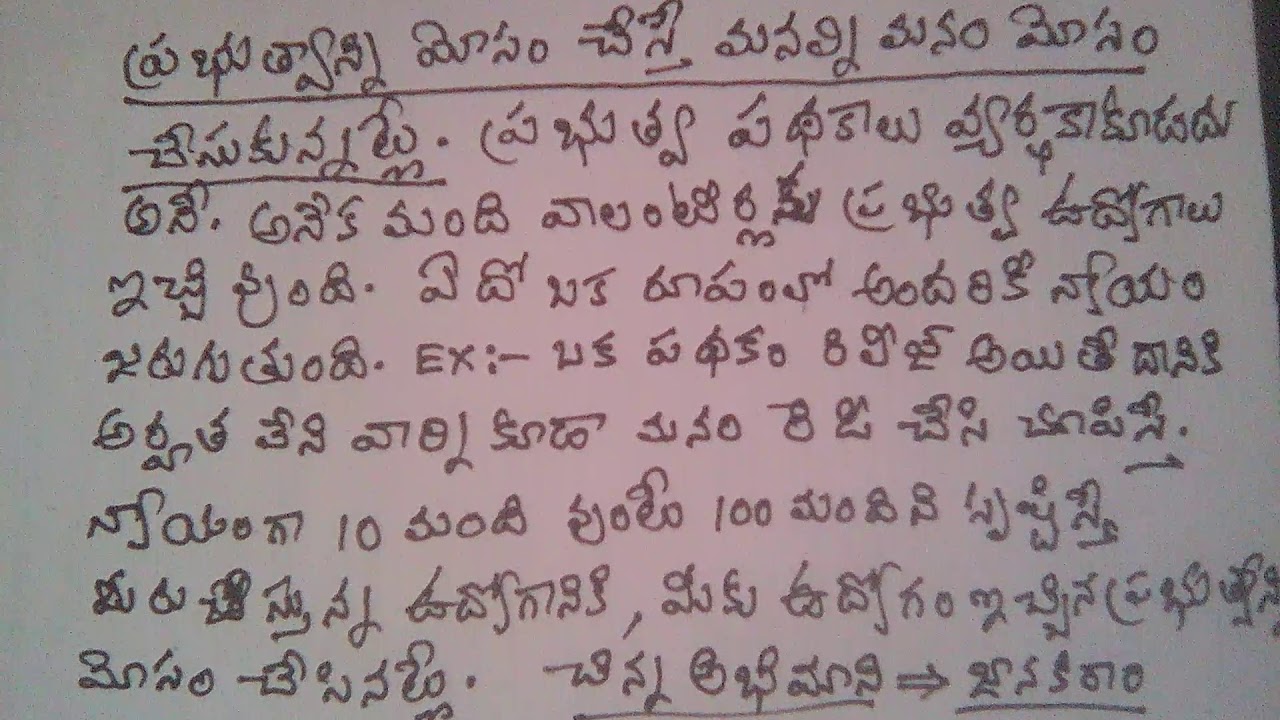 ప్రభుత్వాన్ని మోసం చేస్తే మనల్ని మనం మోసం
చేసుకున్నట్లే. ప్రభుత్వ పథకాలు వ్యర్థకాకూడదు
అనే. అనేక మంది వాలంటీర్లను ప్రభుత్వ ఉద్యోగాలు
ఇచ్చి వుంది. ఏదో ఒక రూపంలో అందరికి న్యాయం
జరుగుతుంది. EX:- ఒక పథకం రిలీజ్ అయితే దానికి
అర్హత లేని వార్ని కూడా మనం చేసి చూపిస్తే.
న్యాయంగా 10 మంది వుంటే 100 మందిని సృష్టిస్తే
మీరు చేస్తున్న ఉద్యోగానికి, మీకు ఉద్యోగం ఇచ్చిన ప్రభుత్వాన్ని
మోసం చేసినట్లే. చిన్న అభిమాని ⇒ జానకిరాం